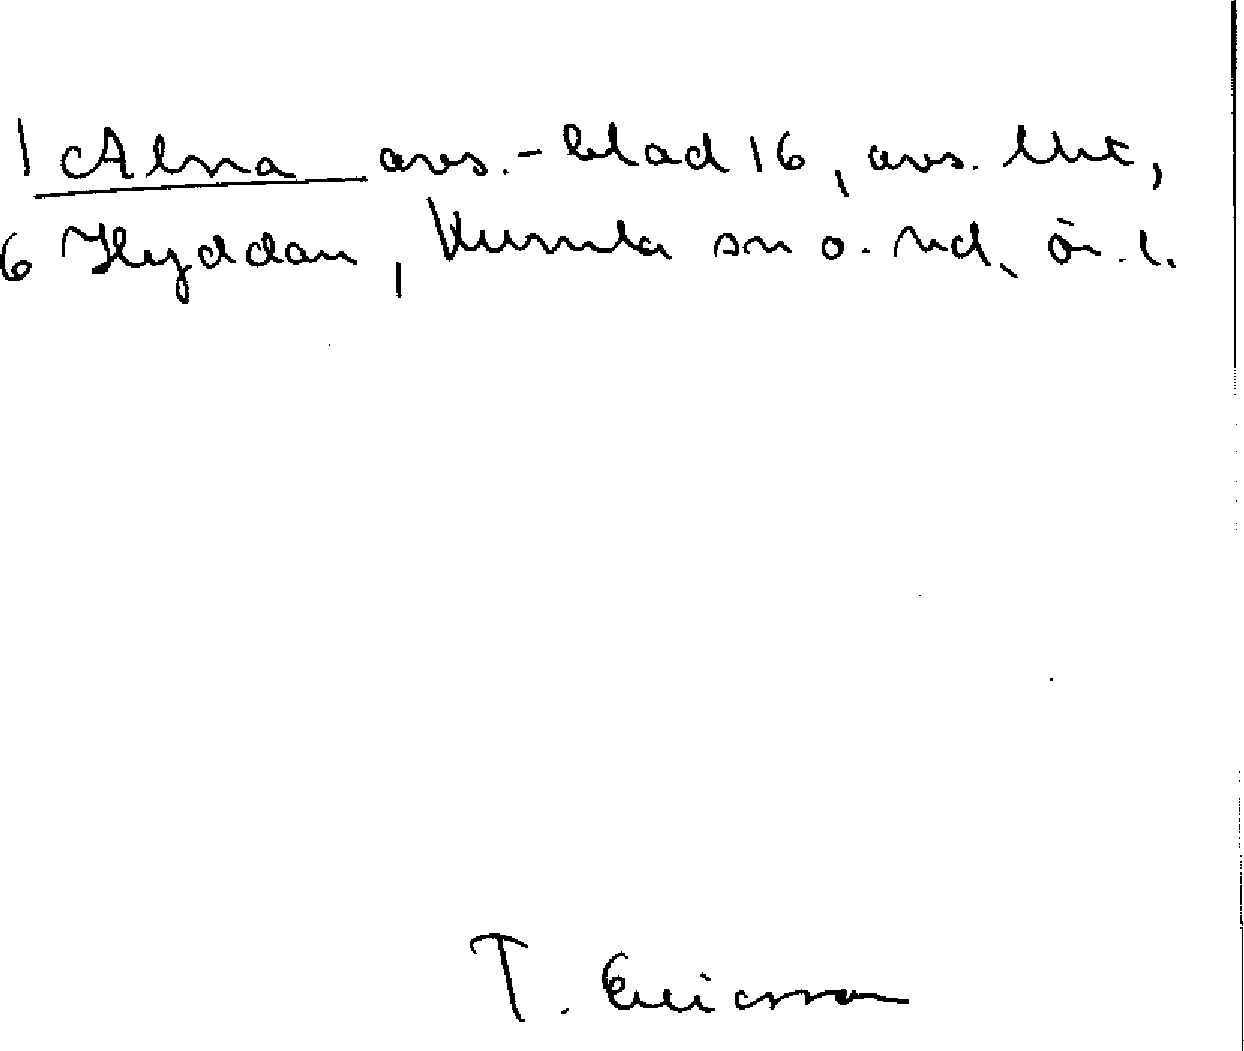 1 Alna avs.-blad 16, avs. lht,
6 Hyddan, Kumla sn o. hd, ör. l.
T. Ericsson